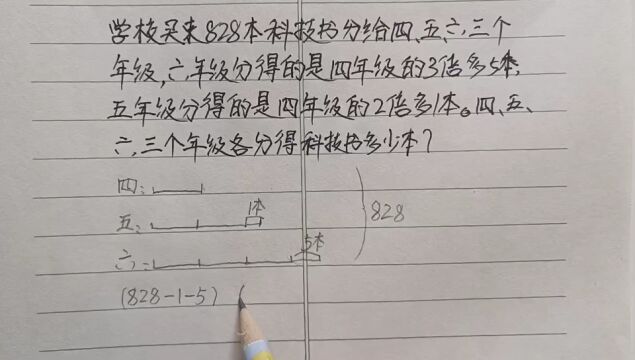 学校买来828本科技书分给四、五、六,三个
年级,六年级分得的是四年级的3倍多5本,
五年级分得的是四年级的2倍多1本。四、五、
六,三个年级各分得科技书多少本?
四:
1本
五:
828
5本
六:
(828-1-5) (